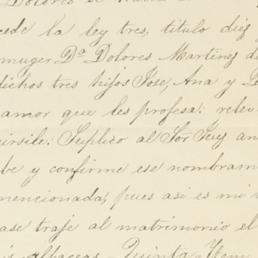 cede la ley tres, titulo diez y
muger Da Dolores Martinez d
dichos tres hijos Jose, Ana y
amor que les profesa: relev
Suplico al Sor Juez an
be y confirme ese nombram
mencionada, pues asi es mi
ase traje al matrimonio el
albaceas Quinta Item